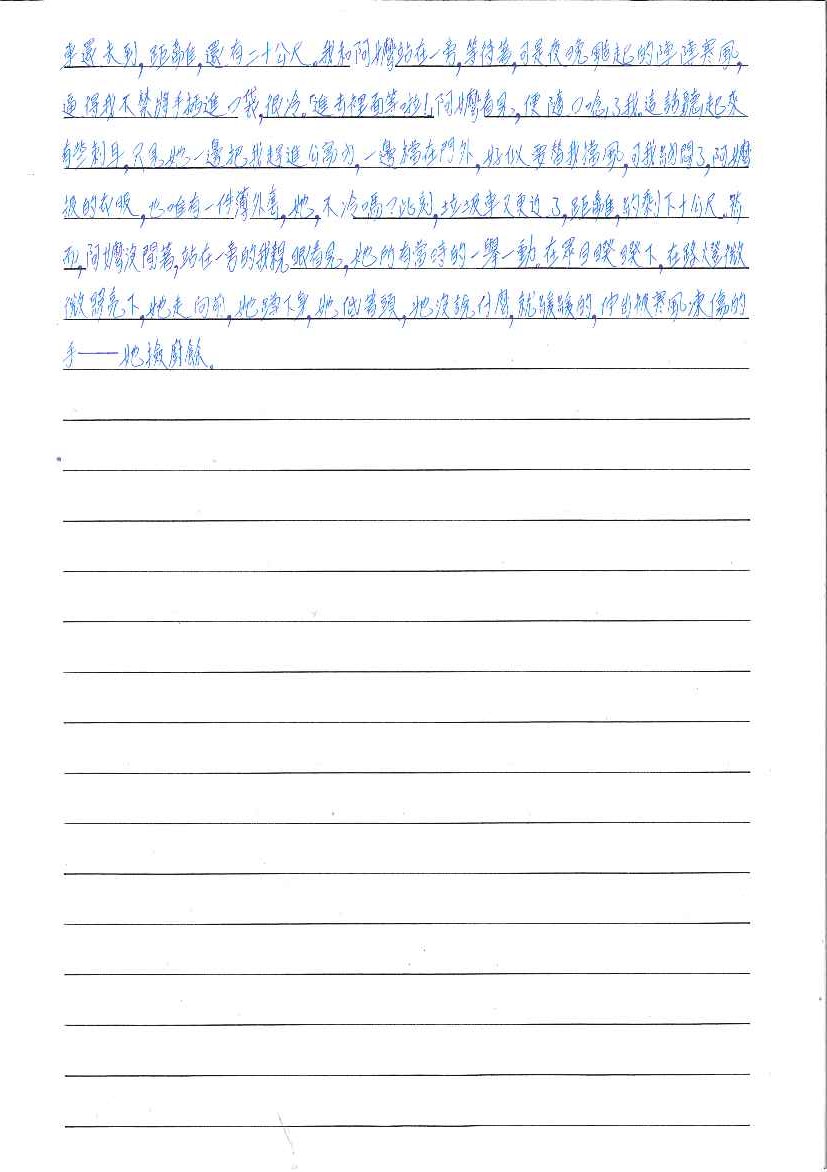 車還未到，距離，還有二十公尺。我和阿嬤站在一旁，等待著，可是夜晚颳起的陣陣寒風，
逼得我不禁將手插進口袋，很冷。「進去裡面等啦！」阿嬤看見，便隨口唸了我，這話聽起來
有些刺耳，只見她一邊把我趕進公寓內，一邊擋在門外，好似要替我擋風，可我納悶了，阿嬤
披的衣服，也唯有一件薄外套，她，不冷嗎？此刻，垃圾車又更近了，距離，約剩下十公尺。然
而，阿嬤沒閒著，站在一旁的我親眼看見，她的當時的一舉一動。在眾目睽睽下，在路燈微
微照亮下，她走向前，她蹲下身，她低著頭，她沒說什麼，就緩緩的，伸出被寒風凍傷的
手——她撿廚餘。